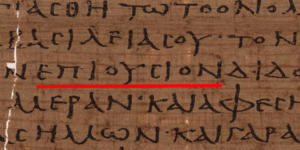 ΓΙΑϹΘΗΤΩΤΟΟΝΟ
ΒΑϹΙΛΕΙΑϹΟΥ·ΤΟΝ
ΝΕΠΙΟΥϹΙΟΝΔΙΔΟ
ΜΕΡΑΝ·ΚΑΙΑΦΕϹΗ
ΑϹΗΜΩΝ·ΚΑΙΓΑΡΑ